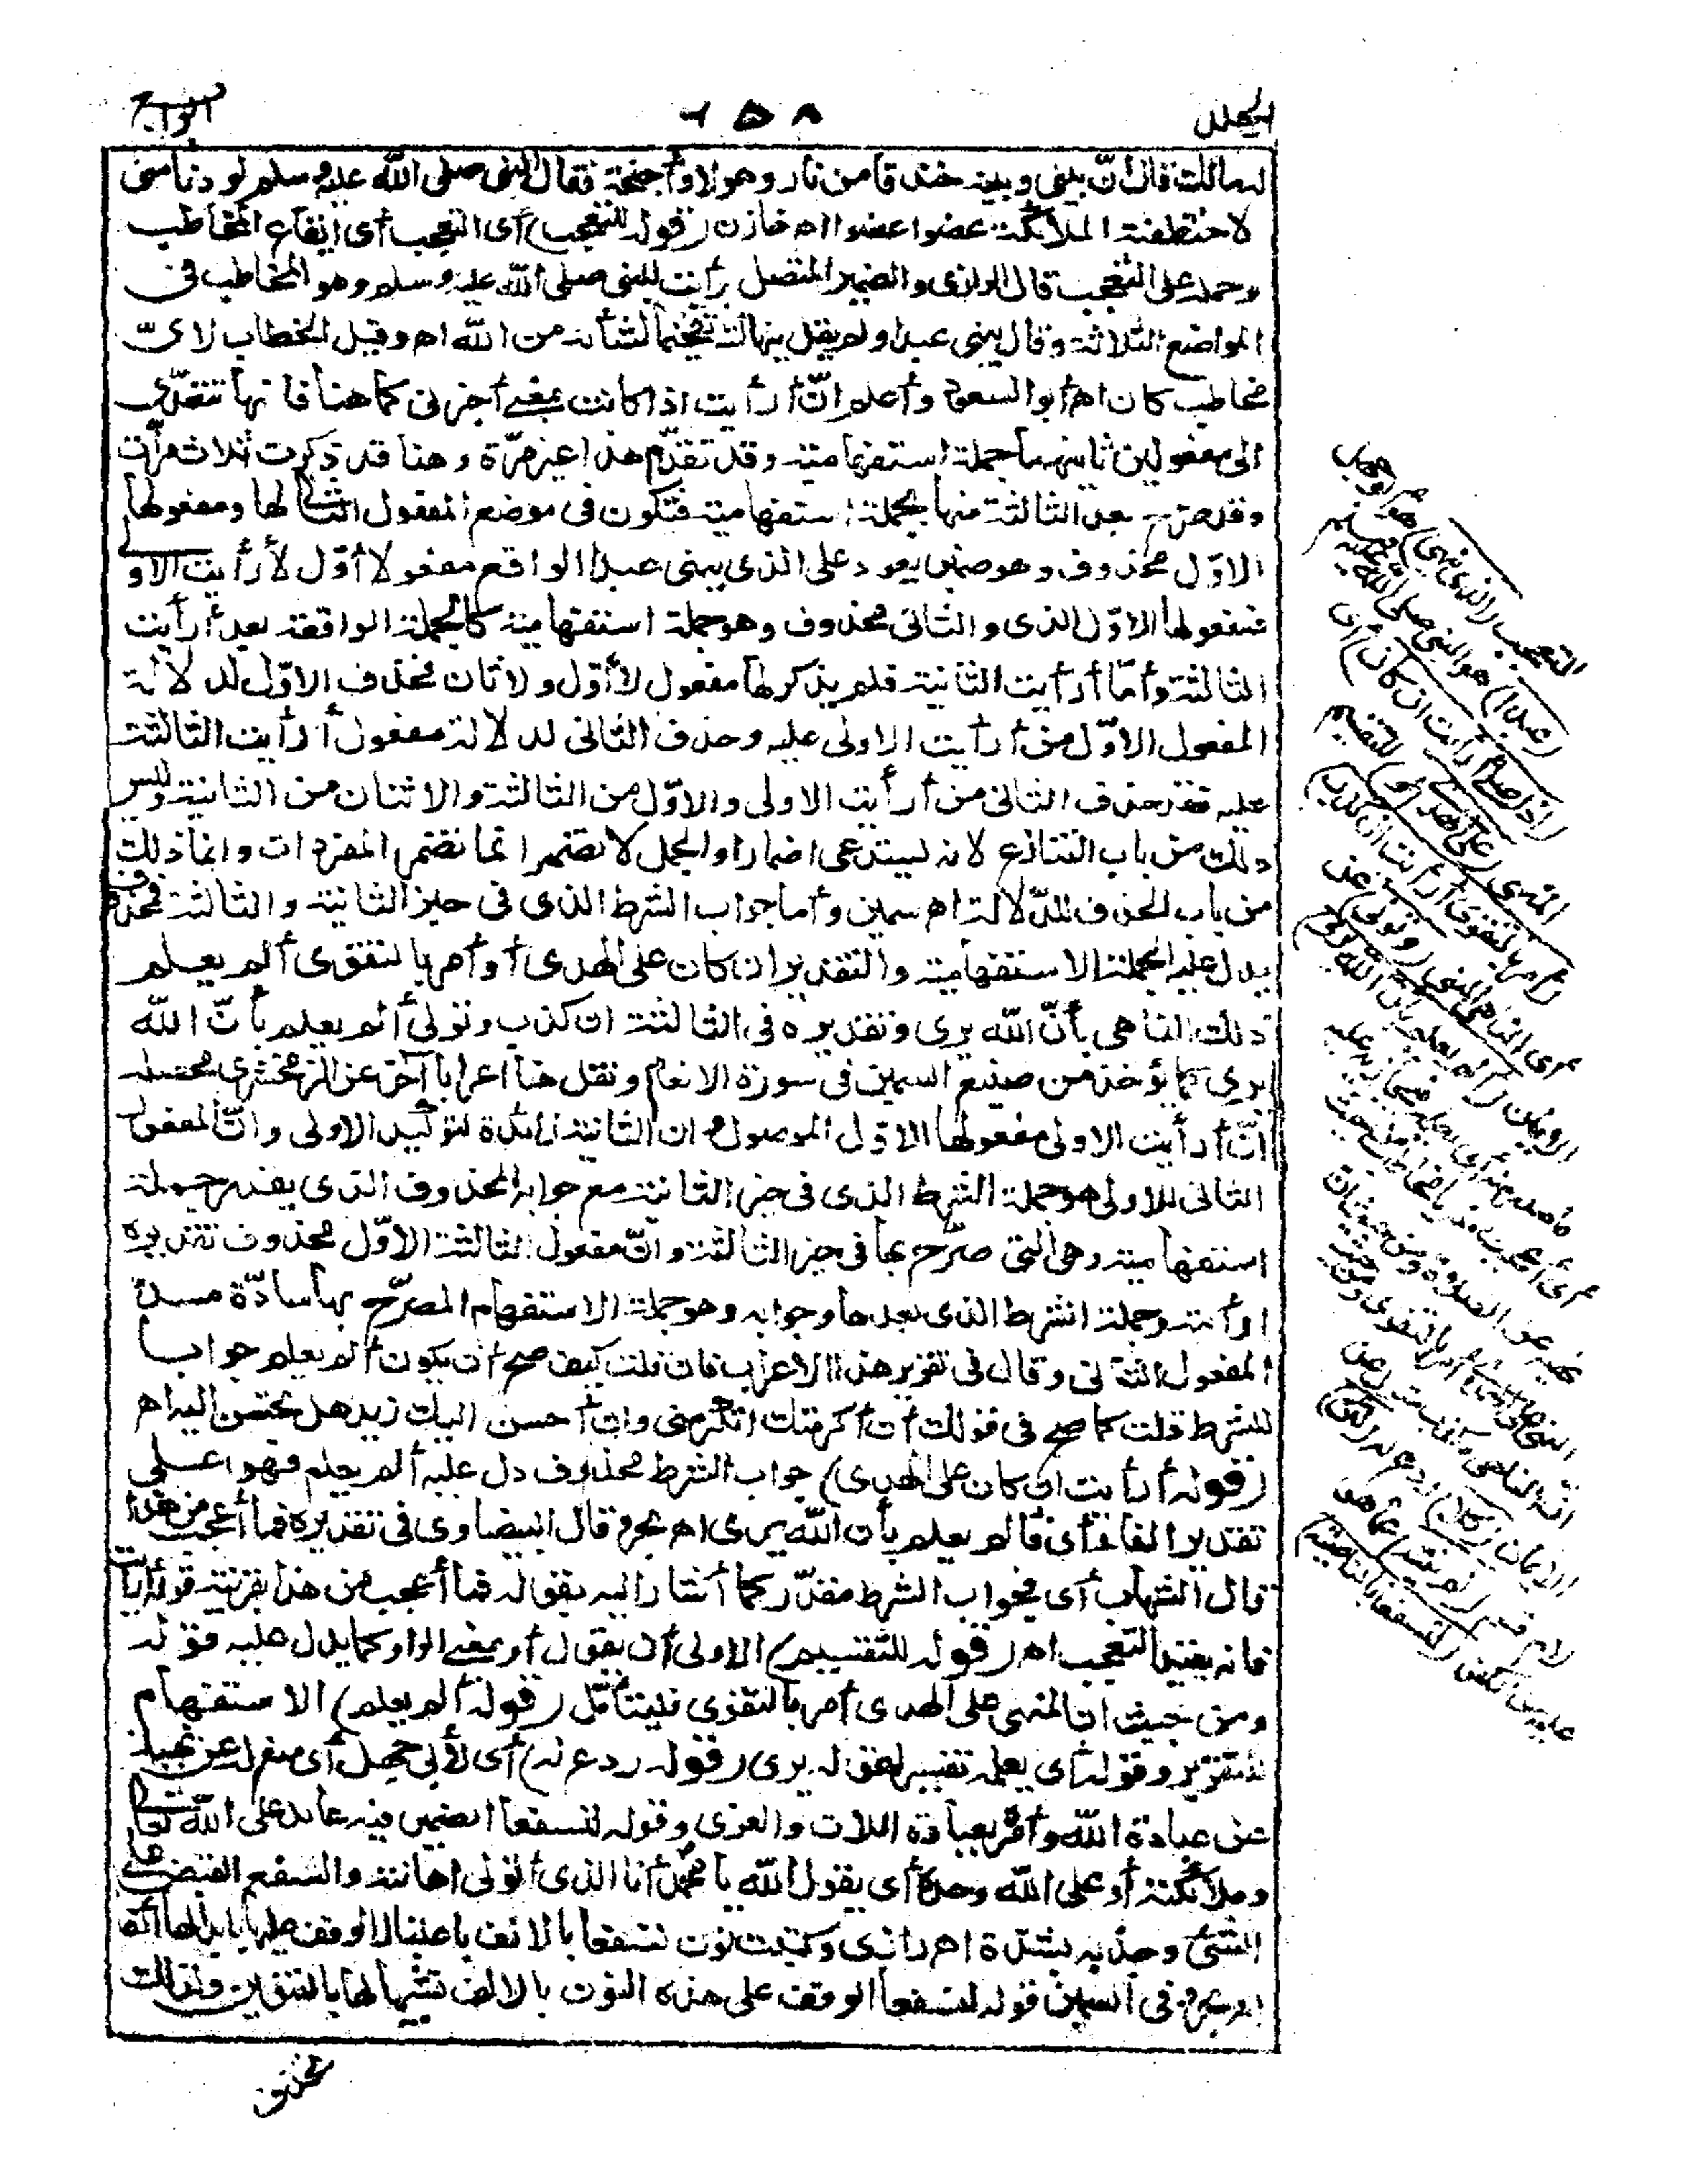 الجلد
٦٥٨
الرابع
له مالك فقال إنّ بيني وبينه خندقا من نار وهولا وأجنحة فقال النبي صلى الله عليه وسلم لو دنا منى
لاختطفته الملائكة عضوا عضوا اه خازن (قوله للتعجب) أى التعجيب أى إيقاع المخاطب
وحمله على التعجب قال الرازى والضمير المتصل برأيت للنبى صلى الله عليه وسلم وهو المخاطب فى
المواضع الثلاثة وقال ينهى عبدا ولم يقل ينهاك تفخيما لشأنه من الله اه وقيل الخطاب لاىّ
مخاطب كان اه أبو السعود وأعلم انّ أرأيت اذا كانت بمعنى أخبرنى كما هنا فانها تتعدّى
الى مفعولين ثانيهما جملة استفهامية وقد تقدّم هذا غير مرّة وهنا قد ذكرت ثلاث مرّات
وقد صرّح بعد الثالثة منها بجملة استفهامية فتكون فى موضع المفعول الثانى لها ومفعولها
الاوّل محذوف وهو ضمير يعود على الذى ينهى عبدا الواقع مفعولا أوّل لأرأيت الاولى
فمفعولها الاوّل الذى والثانى محذوف وهو جملة استفهامية كالجملة الواقعة بعد أرأيت
الثالثة وأمّا أرأيت الثانية فلم يذكر لها مفعول لا أوّل ولا ثان محذف الاوّل لدلالة
المفعول الاوّل من أرأيت الاولى عليه وحذف الثانى لدلالة مفعول أرأيت الثالثة
عليه فقد حذف الثانى من أرأيت الاولى والاوّل من الثالثة والاثنان من الثانية وليس
ذلك من باب التنازع لانه يستدعى اضمارا والجمل لا تضمر انما تضمر المفردات وانما ذلك
من باب الحذف للدّلالة اه سمين وأما جواب الشرط الذى فى حيز الثانية والثالثة فمحذوف
يدل عليه الجملة الاستفهامية والتقدير ان كان على الهدى أو أمر بالتقوى ألم يعلم
ذلك الناهى بأنّ الله يرى وتقديره فى الثالثة ان كذب وتولى ألم يعلم بأنّ الله
يرى كما يؤخذ من صنيع السمين فى سورة الانعام ونقل هنا اعرابا آخر عن الزمخشرى محصله
انّ أرأيت الاولى مفعولها الاوّل الموصول وان الثانية زائدة لتوكيد الاولى وانّ المفعول
الثانى للاولى هو جملة الشرط الذى فى حيز الثانية مع جوابه المحذوف الذى يقدر جملة
استفهامية وهى التى صرّح بها فى حيز الثالثة وانّ مفعول الثالثة الاوّل محذوف تقديره
ارأيته وجملة الشرط الذى بعدها وجوابه وهو جملة الاستفهام المصرّح بها سادّة مسدّ
المفعول الثانى وقال فى تقرير هذا الاعراب فان قلت كيف صح أن يكون ألم يعلم جوابا
للشرط قلت كما صح فى قولك أن أكرمتك اتكرمنى وان أحسن اليك زيد هل تحسن اليه اه
(قوله أرأيت ان كان على الهدى) جواب الشرط محذوف دل عليه ألم يعلم فهو على
تقدير الفاء أى فألم يعلم بأن الله يرى اه بحر وقال البيضاوى فى تقديره فما أعجب من هذا
قال الشهاب أى فجواب الشرط مقدّر كما أشار اليه بقوله فما أعجب من هذا بقرينة قوله أرأيت
فانه يفيد التعجب اه (قوله للتقسيم) الاولى أن يقول أو بمعنى الواو كما يدل عليه قوله
ومن حيث ان المنهى على الهدى أمر بالتقوى فليتأمّل (قوله ألم يعلم) الاستفهام
للتقرير وقوله أى يعلمه تفسير لقوله يرى (قوله ردع له) أى لأبى جهل أى منع له عن نهيه
عن عبادة الله وأمره بعبادة اللات والعزى وقوله لنسفعا الضمير فيه عائد على الله تعالى
وملائكته أو على الله وحده أى يقول الله يا محمّد أنا الذى أتولى اهانته والسفع القبض على
الشئ وجذبه بشدّة اه رازى وكتبت نون نسفعا بالالف باعتبار الوقف عليها بابدالها ألفا
اه بحر وفى السمين قوله لنسفعا الوقف على هذه النون بالالف تشبيها لها بالتنوين ولذلك
التعجب (الذى ينهى) هو أبو جهل
(عبدا) هو النبى صلى الله عليه وسلم
(اذا صلى أرأيت ان كان) أى
المنهى (على الهدى أو) للتقسيم
(أمر بالتقوى أرأيت ان كذب)
أى الناهى النبى (وتولى) عن
الايمان (ألم يعلم بأن الله يرى)
ما صدر منه أى يعلمه فيجازيه عليه
أى أعجب منه يا مخاطب من حيث
نهيه عن الصلوة ومن حيث ان
المنهى على الهدى أمر بالتقوى ومن حيث
انّ الناهى مكذب متول عن
الايمان (كلا) ردع له (لئن)
لام قسم (لم ينته) عما هو
عليه من الكفر (لنسفعا بالناصية)